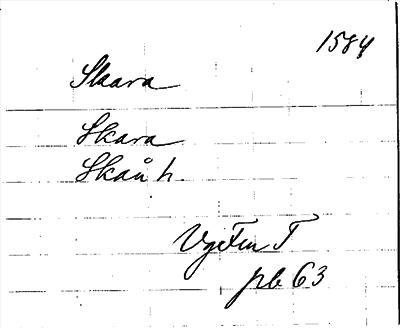 1584
Skara
Skara
Skån h.
Vg Fru T
pb 63